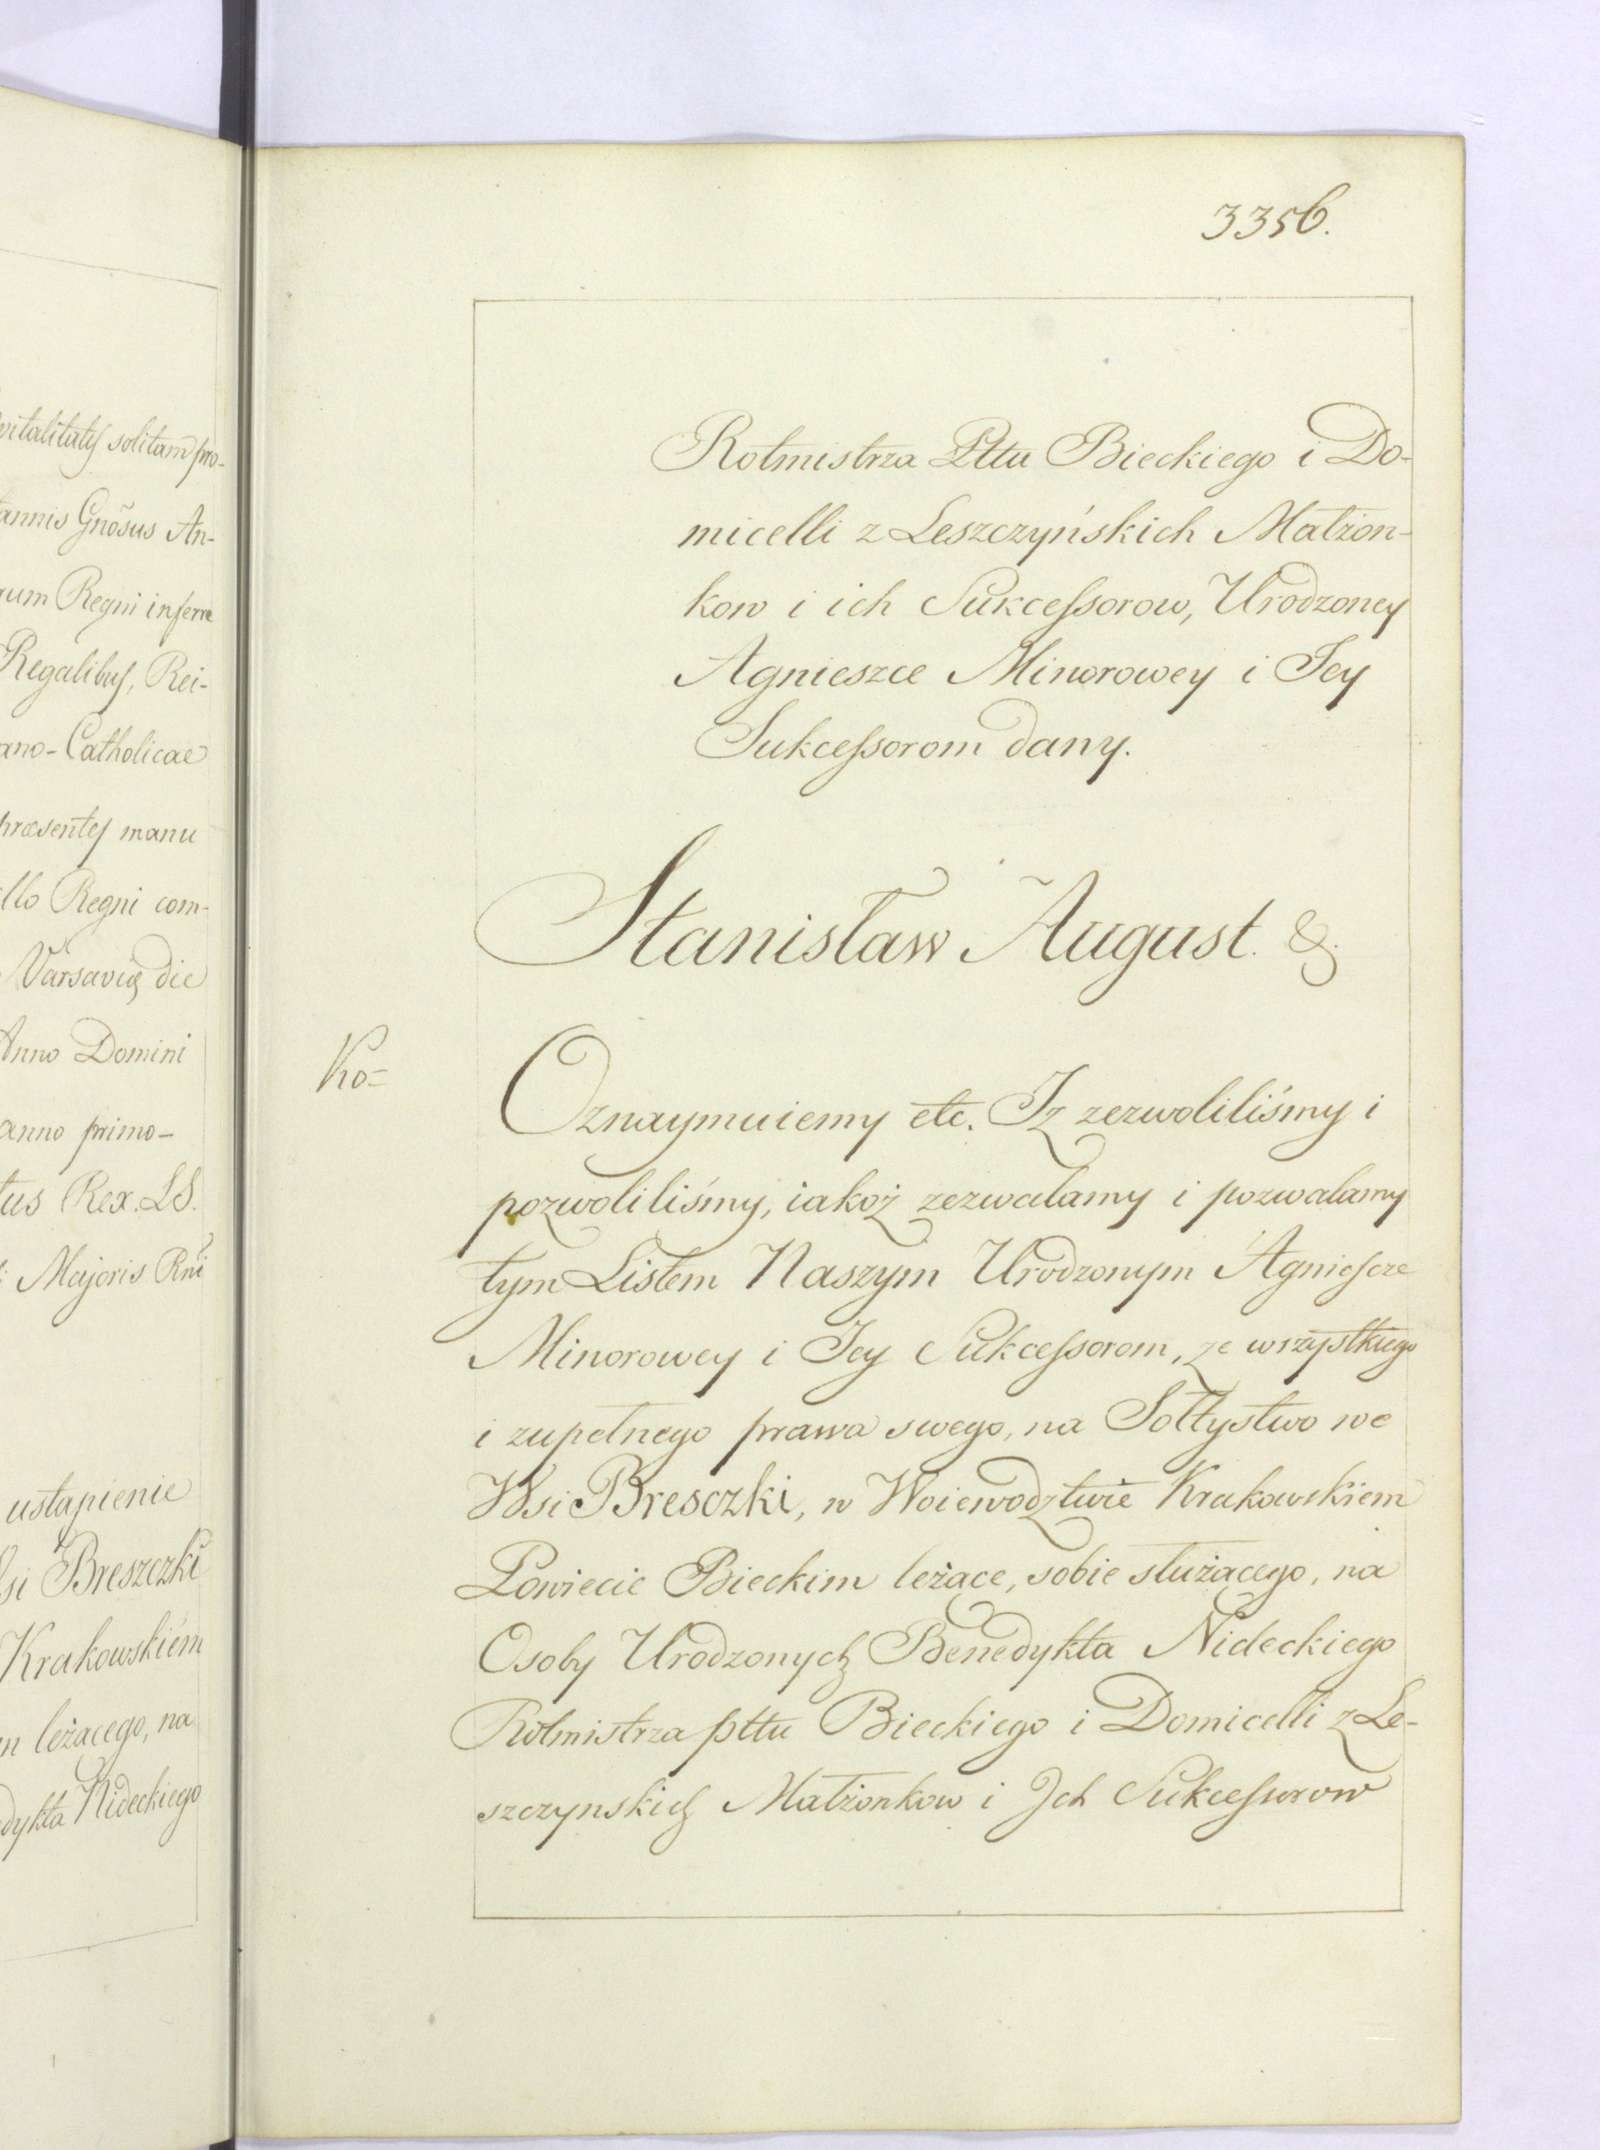 vitalitatis solitam pro-
annis Gnosus An-
um Regni inferre
Regalibus, Rei-
ano-Catholicae
præsentes manu
illo Regni com-
Varsaviæ die
Anno Domini
anno primo-
tus Rex. LS.
Majoris Rni
ustąpienie
si Breszczki
Krakowskiém
m leżącego, na
dykta Nideckiego
3356.
Rotmistrza Pttu Bieckiego i Do-
micelli z Leszczyńskich Małżon-
kow i ich Sukcessorow, Urodzoney
Agnieszce Minorowey i Jey
Sukcessorom dany.
Stanisław August. &.
Ko=
Oznaymuiemy etc. Iz zezwoliliśmy i
pozwoliliśmy, iakoż zezwalamy i pozwalamy
tym Listem Naszym Urodzonym Agniescze
Minorowey i Jey Sukcessorom, ze wszystkiego
i zupełnego prawa swego, na Sołtystwo we
Wsi Bresczki, w Woiewodztwie Krakowskiem
Powiecie Bieckim leżące, sobie służącego, na
Osoby Urodzonych Benedykta Nideckiego
Rotmistrza pttu Bieckiego i Domicelli z Le-
szczynskich Małżonkow i Jch Sukcessorow